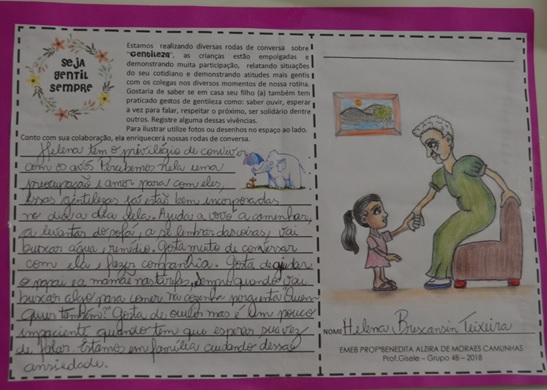 SEJA
GENTIL
SEMPRE
Estamos realizando diversas rodas de conversa sobre
"Gentileza", as crianças estão empolgadas e
demonstrando muita participação, relatando situações
do seu cotidiano e demonstrando atitudes mais gentis
com os colegas nos diversos momentos de nossa rotina.
Gostaria de saber se em casa seu filho (a) também tem
praticado gestos de gentileza como: saber ouvir, esperar
a vez para falar, respeitar o próximo, ser solidário dentre
outros. Registre alguma dessas vivências.
Para ilustrar utilize fotos ou desenhos no espaço ao lado.
Conto com sua colaboração, ela enriquecerá nossas rodas de conversa.
Helena tem o privilégio de conviver
com os avós. Percebemos nela uma
preocupação e amor para com eles,
essas gentilezas já estão bem incorporadas
no dia a dia dela. Ajuda a vovó a caminhar,
a levantar do sofá, a se lembrar das coisas, vai
buscar água, remédio. Gosta muito de conversar
com ela e fazer companhia. Gosta de ajudar
o papai e a mamãe nas tarefas, sempre quando vai
buscar algo para comer na cozinha pergunta "Quem
quer também?" Gosta de ouvir mas é um pouco
impaciente quando tem que esperar sua vez
de falar. Estamos em família cuidando dessa
ansiedade.
NOME Helena Brescansin Teixeira
EMEB PROFªBENEDITA ALZIRA DE MORAES CAMUNHAS
Prof.Gisele – Grupo 4B – 2018